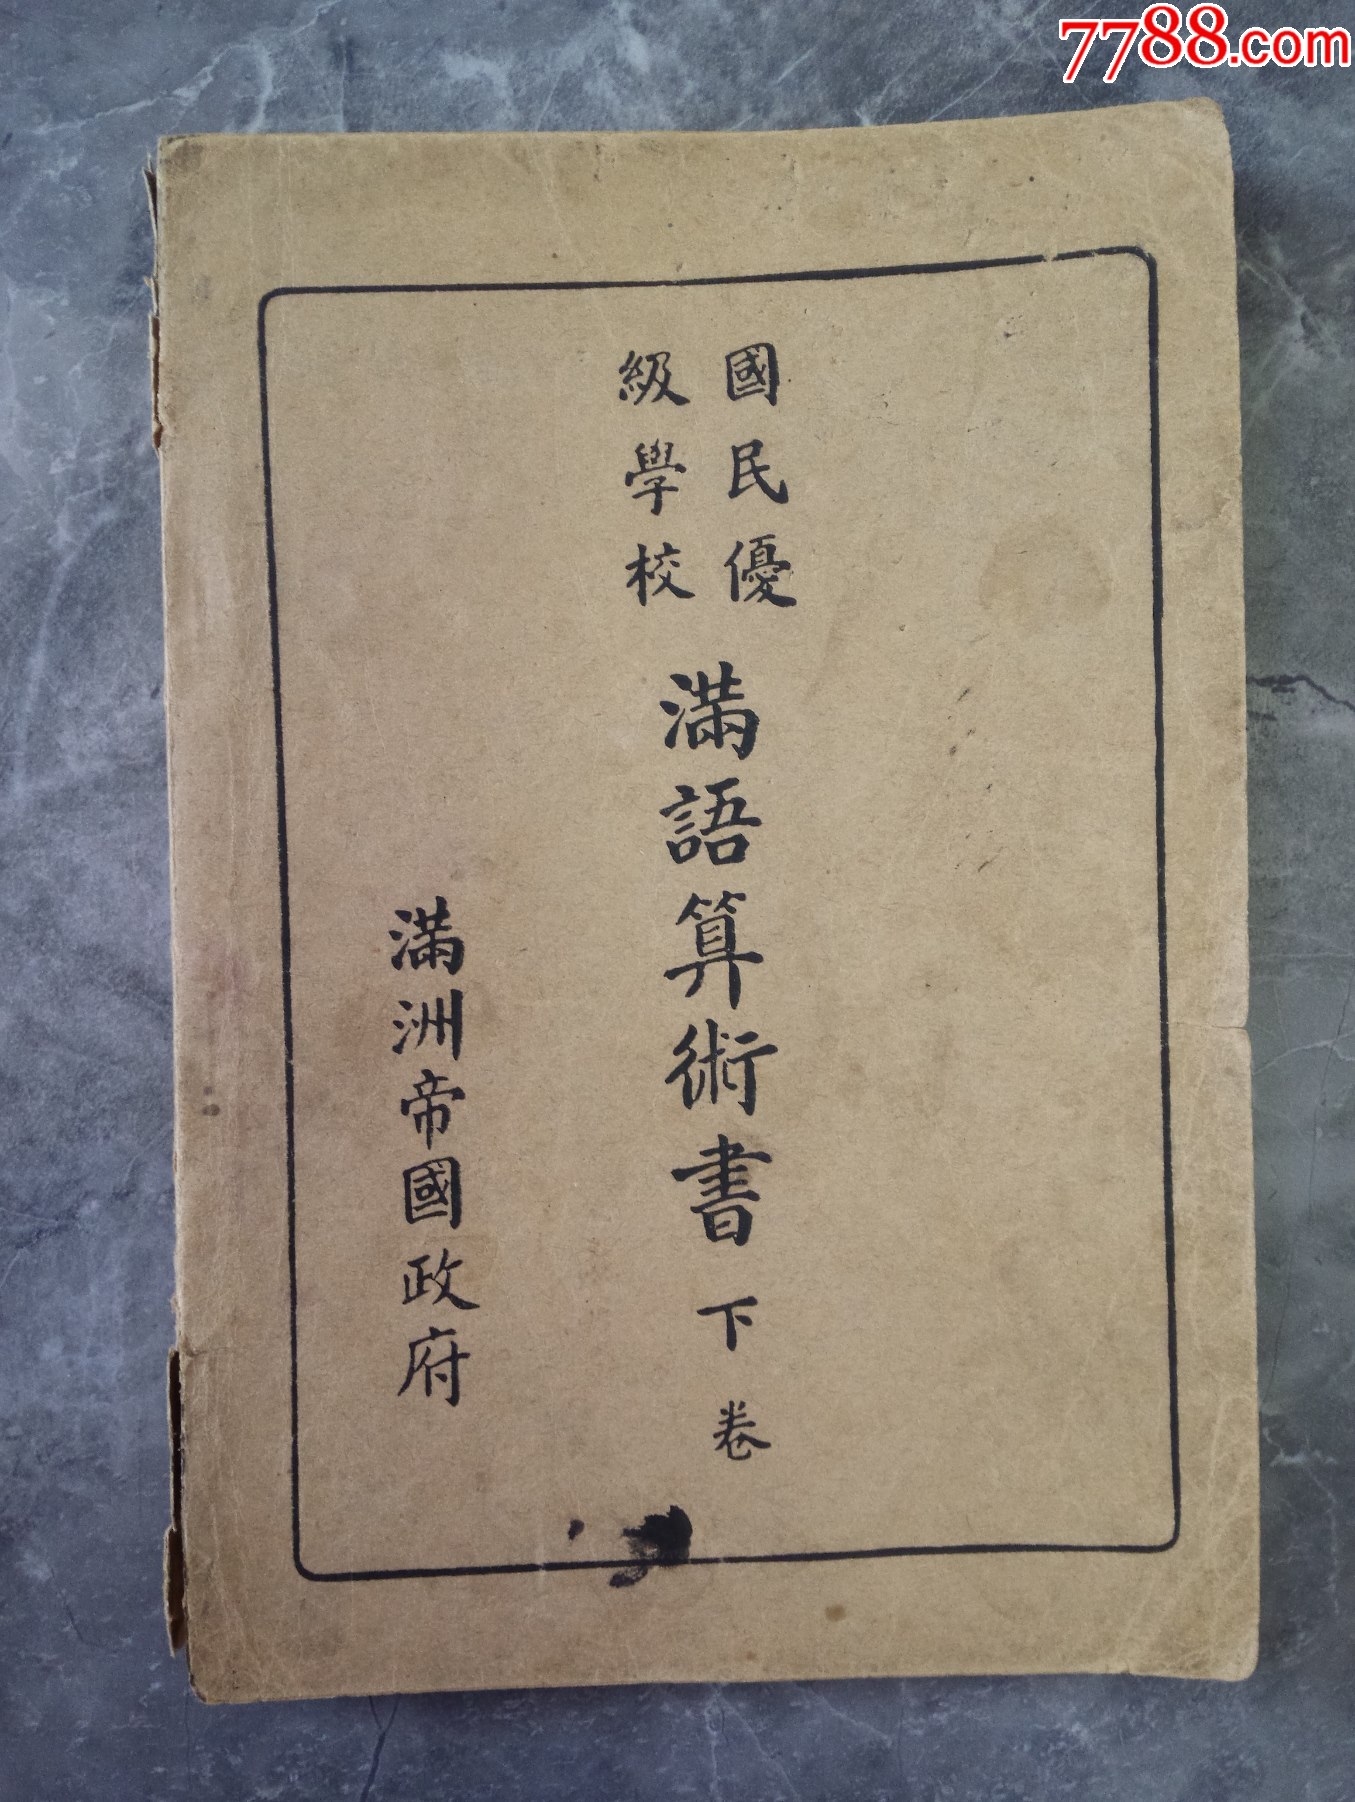 7788.com
國民優
級學校
滿語算術書 下卷
滿洲帝國政府